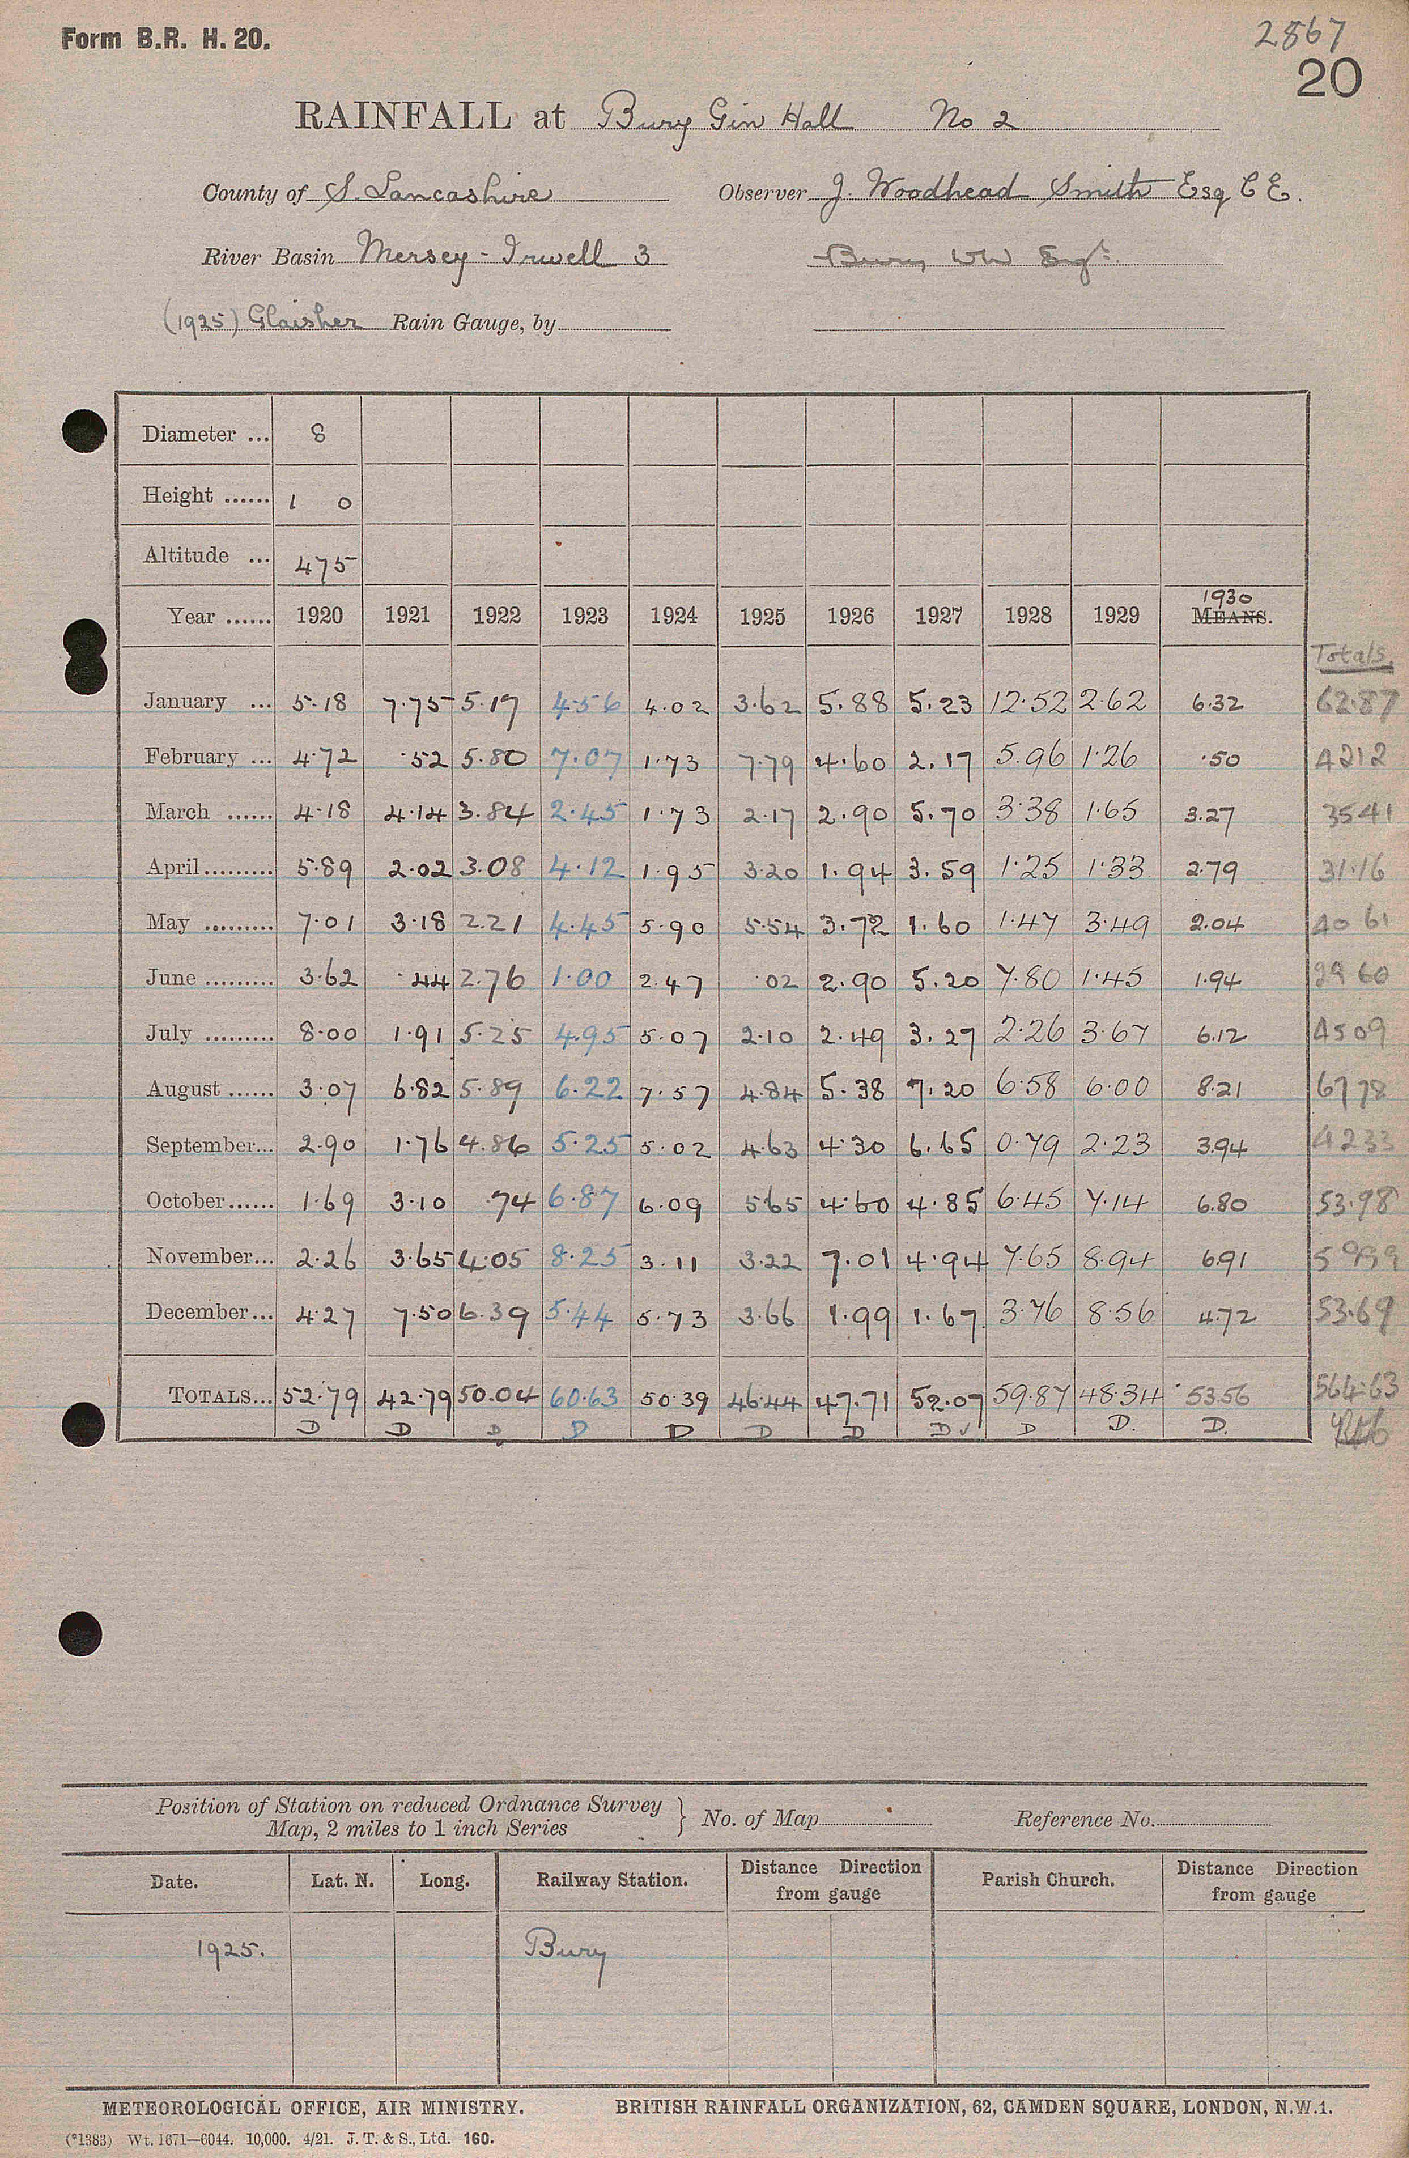 Form B.R. H. 20.
2867
20
RAINFALL at Bury Gin Hall No 2
County of S. Lancashire Observer J. Woodhead Smith Esq C E.
River Basin Mersey - Irwell 3 Bury WW Engr.
(1925) Glaisher Rain Gauge, by
Diameter ... 8
Height ...... 1 0
Altitude ... 475
Year ...... 1920 1921 1922 1923 1924 1925 1926 1927 1928 1929 1930 MEANS.
Totals
January ... 5.18 7.75 5.17 4.56 4.02 3.62 5.88 5.23 12.52 2.62 6.32 62.87
February ... 4.72 .52 5.80 7.07 1.73 7.79 4.60 2.17 5.96 1.26 .50 4212
March ...... 4.18 4.14 3.84 2.45 1.73 2.17 2.90 5.70 3.38 1.65 3.27 3541
April ......... 5.89 2.02 3.08 4.12 1.95 3.20 1.94 3.59 1.25 1.33 2.79 31.16
May ......... 7.01 3.18 2.21 4.45 5.90 5.54 3.72 1.60 1.47 3.49 2.04 40 61
June ......... 3.62 .44 2.76 1.00 2.47 .02 2.90 5.20 7.80 1.45 1.94 29 60
July ......... 8.00 1.91 5.25 4.95 5.07 2.10 2.49 3.27 2.26 3.67 6.12 4509
August ...... 3.07 6.82 5.89 6.22 7.57 4.84 5.38 7.20 6.58 6.00 8.21 6778
September... 2.90 1.76 4.86 5.25 5.02 4.63 4.30 6.65 0.79 2.23 3.94 4233
October...... 1.69 3.10 .74 6.87 6.09 5.65 4.60 4.85 6.45 7.14 6.80 53.98
November... 2.26 3.65 4.05 8.25 3.11 3.22 7.01 4.94 7.65 8.94 6.91 5999
December... 4.27 7.50 6.39 5.44 5.73 3.66 1.99 1.67 3.76 8.56 4.72 53.69
TOTALS... 52.79 42.79 50.04 60.63 50.39 46.44 47.71 52.07 59.87 48.34 53.56 564.63
D D D D D D D D ✓ D D. D.
Position of Station on reduced Ordnance Survey Map, 2 miles to 1 inch Series } No. of Map Reference No.
Date. Lat. N. Long. Railway Station. Distance Direction from gauge Parish Church. Distance Direction from gauge
1925. Bury
METEOROLOGICAL OFFICE, AIR MINISTRY. BRITISH RAINFALL ORGANIZATION, 62, CAMDEN SQUARE, LONDON, N.W.1.
(*1383) Wt. 1671—6044. 10,000. 4/21. J. T. & S., Ltd. 160.